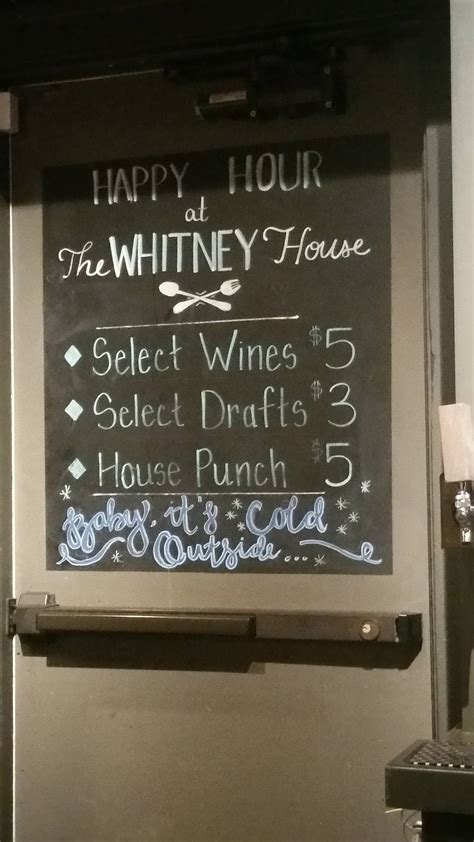 HAPPY HOUR
at
The WHITNEY House
Select Wines $5
Select Drafts $3
House Punch $5
Baby, it's Cold
Outside...